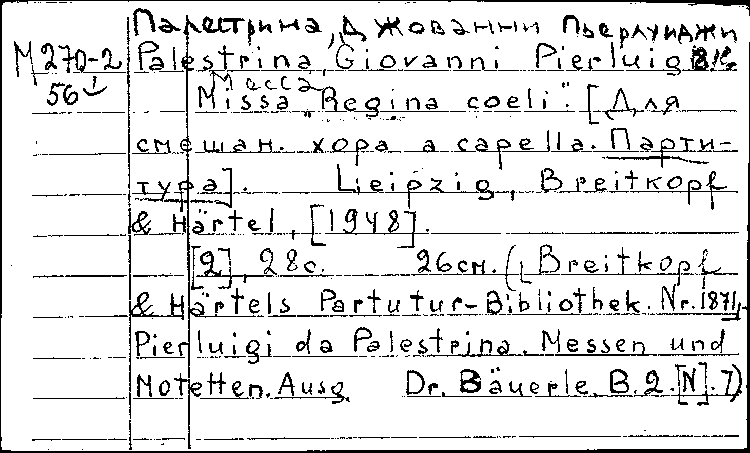 Палестрина, Джованни Пьерлуиджи
М 270-2 Palestrina, Giovanni Pierluigi
56
Месса
Missa „Regina coeli". [Для
смешан. хора a capella. Парти-
тура]. Lieipzig, Breitkopf
& Härtel, [1948].
[2], 28с. 26см. (Breitkopf
& Härtels Partutur-Bibliothek. Nr. 1871,
Pierluigi da Palestrina. Messen und
Motetten. Ausg. Dr. Bäuerle. B.2.[N].7)